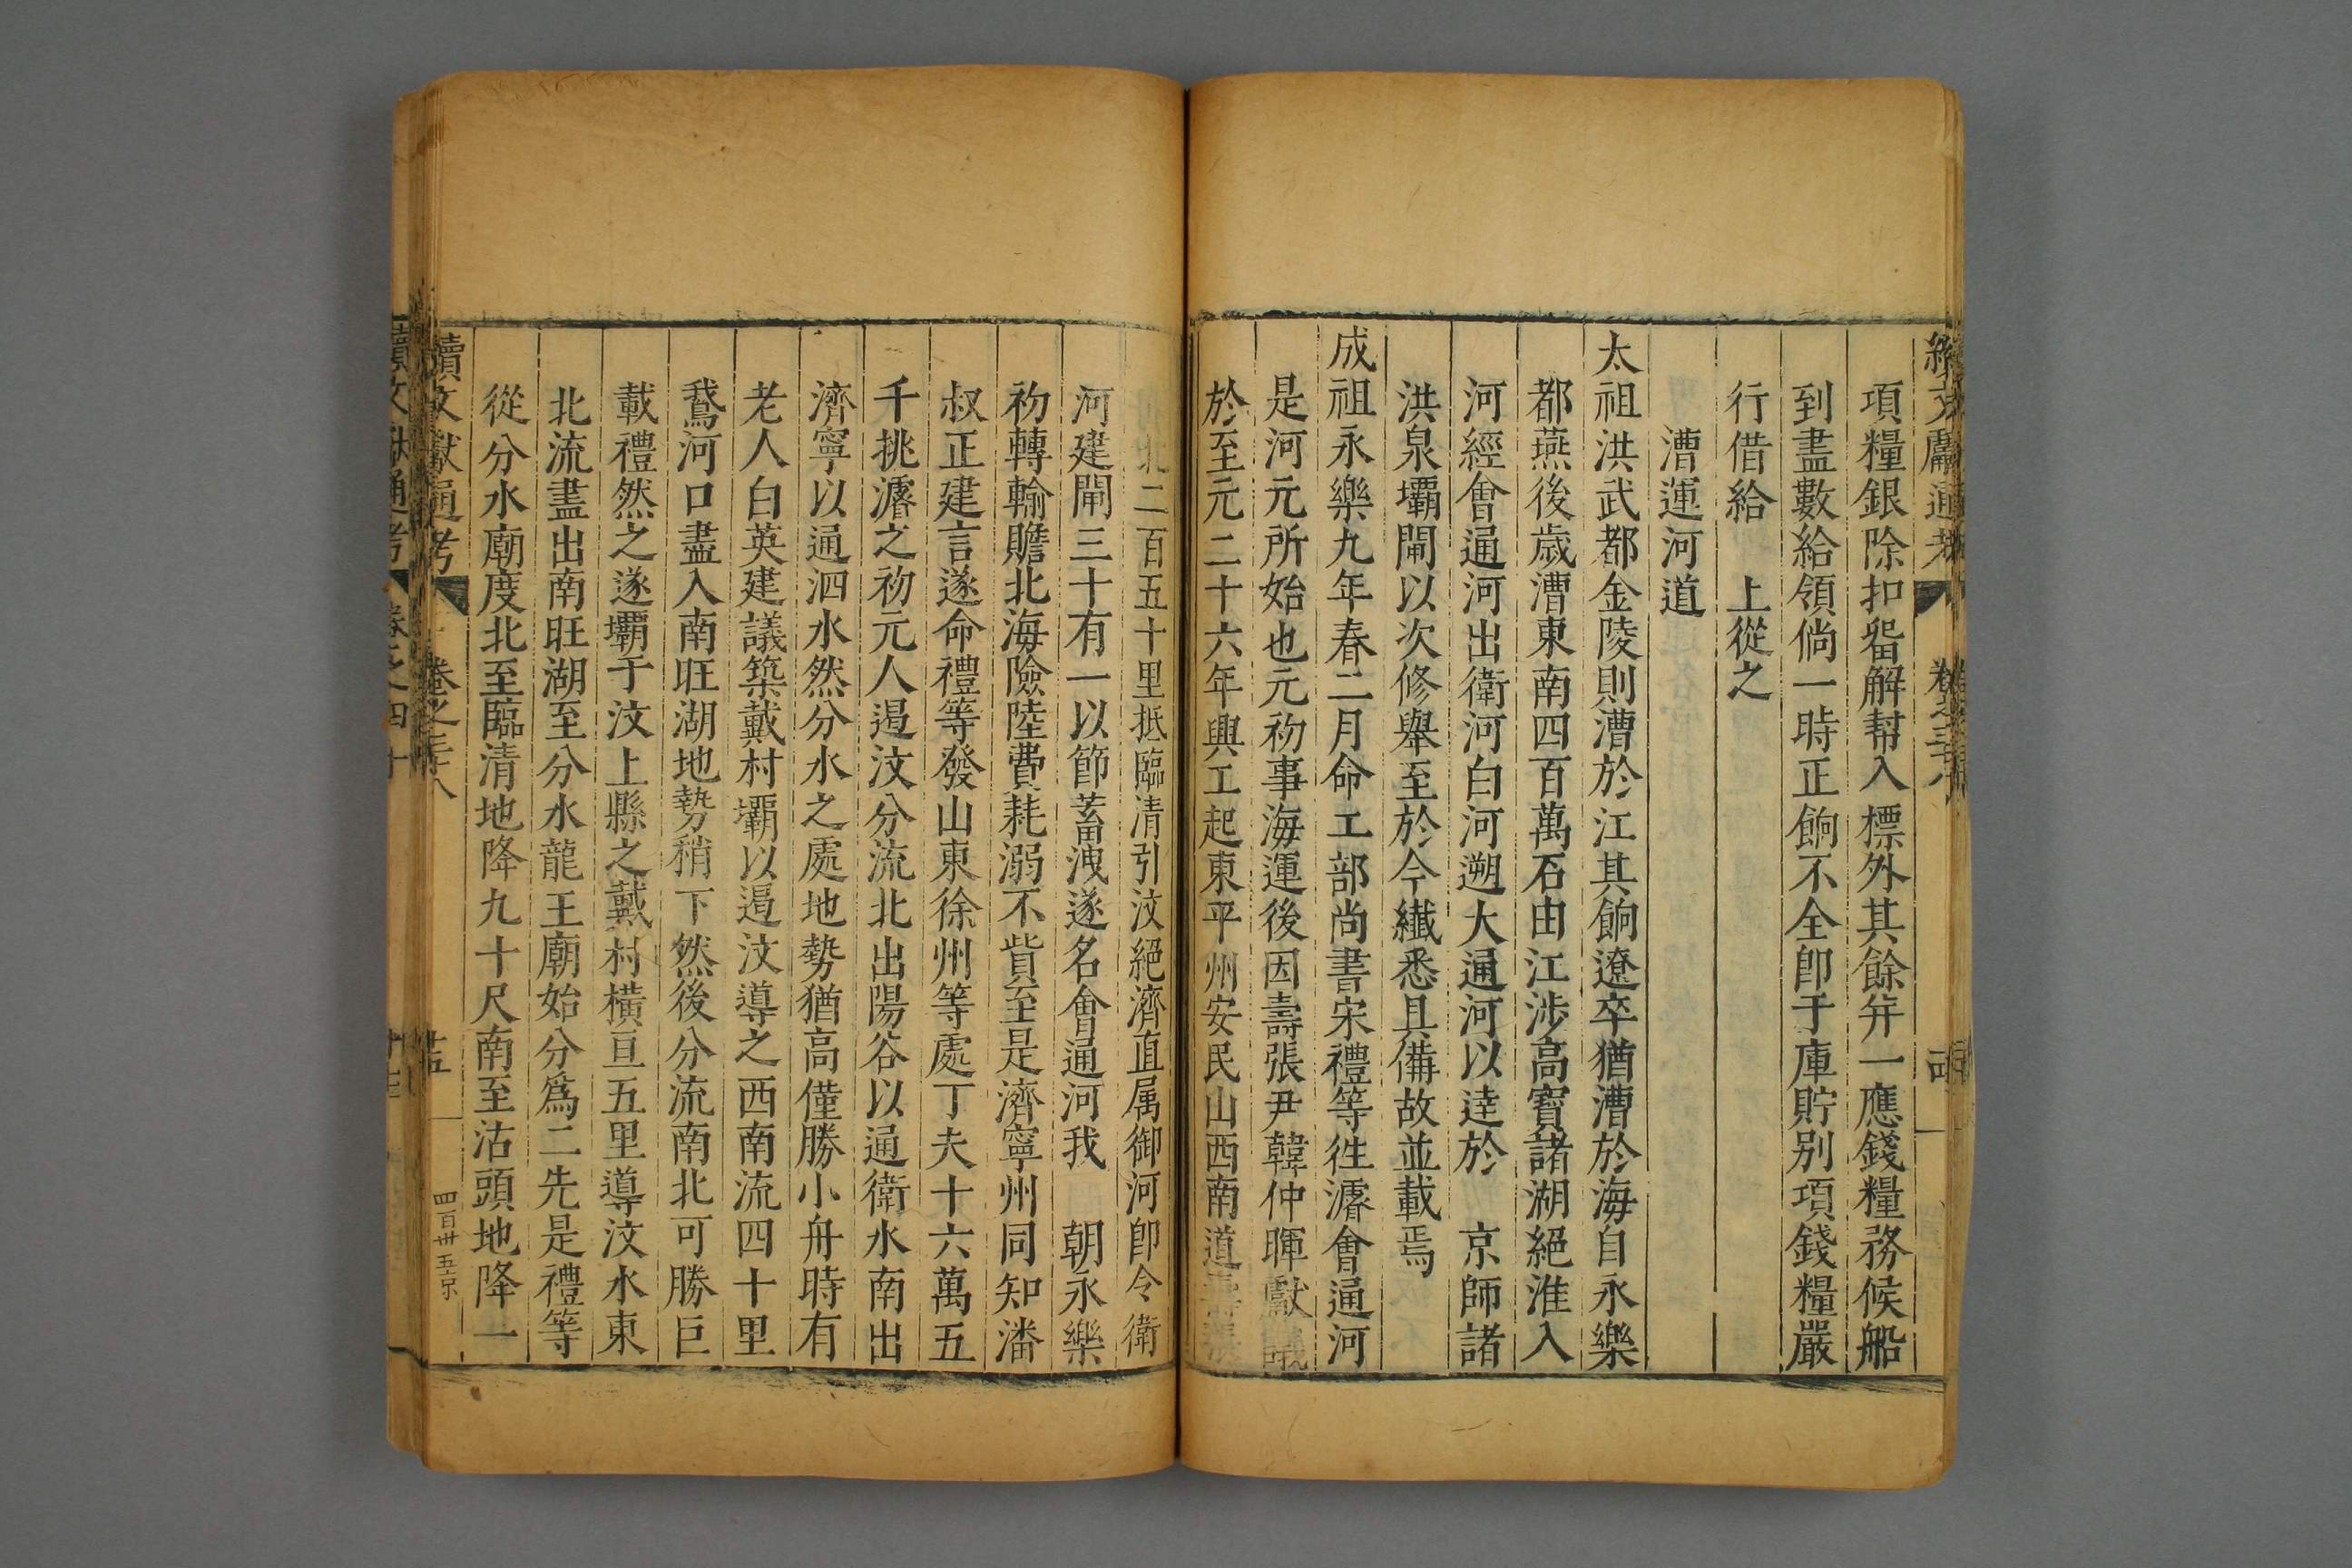 項糧銀除扣畱解幇入標外其餘弁一應錢糧務候船
到盡數給領倘一時正餉不全卽于庫貯别項錢糧嚴
行借給　上從之
漕運河道
太祖洪武都金陵則漕於江其餉遼卒猶漕於海自永樂
都燕後歲漕東南四百萬石由江涉高寶諸湖絕淮入
河經會通河出衛河白河遡大通河以逹於　京師諸
洪泉壩閘以次修舉至於今纎悉具備故並載焉
成祖永樂九年春二月命工部尚書宋禮等徃濬會通河
是河元所始也元初事海運後因壽張尹韓仲暉獻議
於至元二十六年興工起東平州安民山西南道壽張
北二百五十里抵臨清引汶絕濟直属御河卽令衛
河建閘三十有一以節蓄洩遂名會通河我　朝永樂
初轉輸贍北海險陸費耗溺不貲至是濟寧州同知潘
叔正建言遂命禮等發山東徐州等處丁夫十六萬五
千挑濬之初元人遏汶分流北出陽谷以通衛水南出
濟寧以通泗水然分水之處地勢猶高僅勝小舟時有
老人白英建議築戴村壩以遏汶導之西南流四十里
鵞河口盡入南旺湖地勢稍下然後分流南北可勝巨
載禮然之遂壩于汶上縣之戴村橫亘五里導汶水東
北流盡出南旺湖至分水龍王廟始分爲二先是禮等
從分水廟度北至臨清地降九十尺南至沽頭地降一
續文獻通考　卷之三十八
四百卅五京